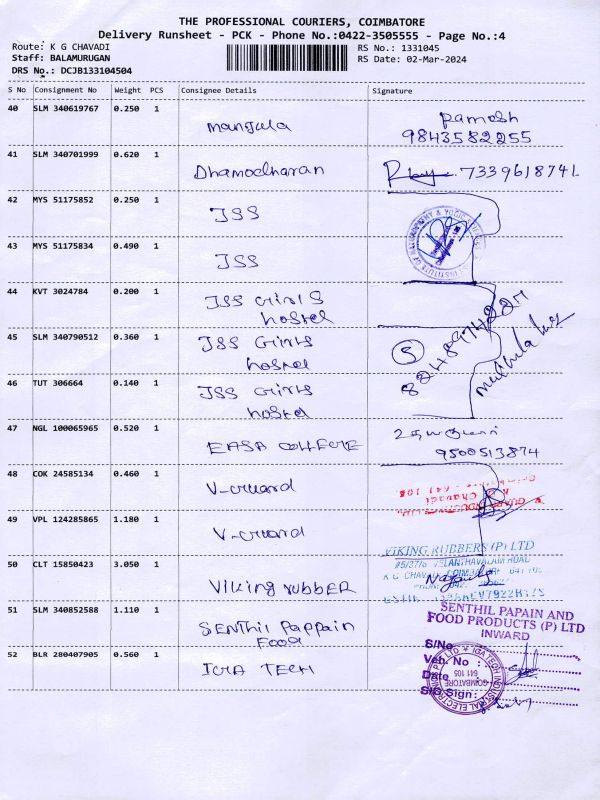 THE PROFESSIONAL COURIERS, COIMBATORE
Delivery Runsheet - PCK - Phone No.:0422-3505555 - Page No.:4
Route: K G CHAVADI
RS No.: 1331045
Staff: BALAMURUGAN
RS Date: 02-Mar-2024
DRS No.: DCJB133104504
S No Consignment No Weight PCS Consignee Details Signature
40 SLM 340619767 0.250 1 Manjula
Ramesh
9843582255
41 SLM 340701999 0.620 1 Dhamodharan 7339618741
42 MYS 51175852 0.250 1 JSS
43 MYS 51175834 0.490 1 JSS
44 KVT 3024784 0.200 1 JSS Girls
hostel
45 SLM 340790512 0.360 1 JSS Girls
hostel
5
46 TUT 306664 0.140 1 JSS Girls
hostel
47 NGL 100065965 0.520 1 EASA COLLEGE
9500513874
48 COK 24585134 0.460 1 V-Guard
49 VPL 124285865 1.180 1 V-Guard
50 CLT 15850423 3.050 1 Viking rubber
VIKING RUBBERS (P) LTD
51 SLM 340852588 1.110 1 Senthil Pappain
Food
SENTHIL PAPAIN AND
FOOD PRODUCTS (P) LTD
INWARD
S/No
Veh. No :
Date
S/G Sign:
52 BLR 280407905 0.560 1 ICRA TECH